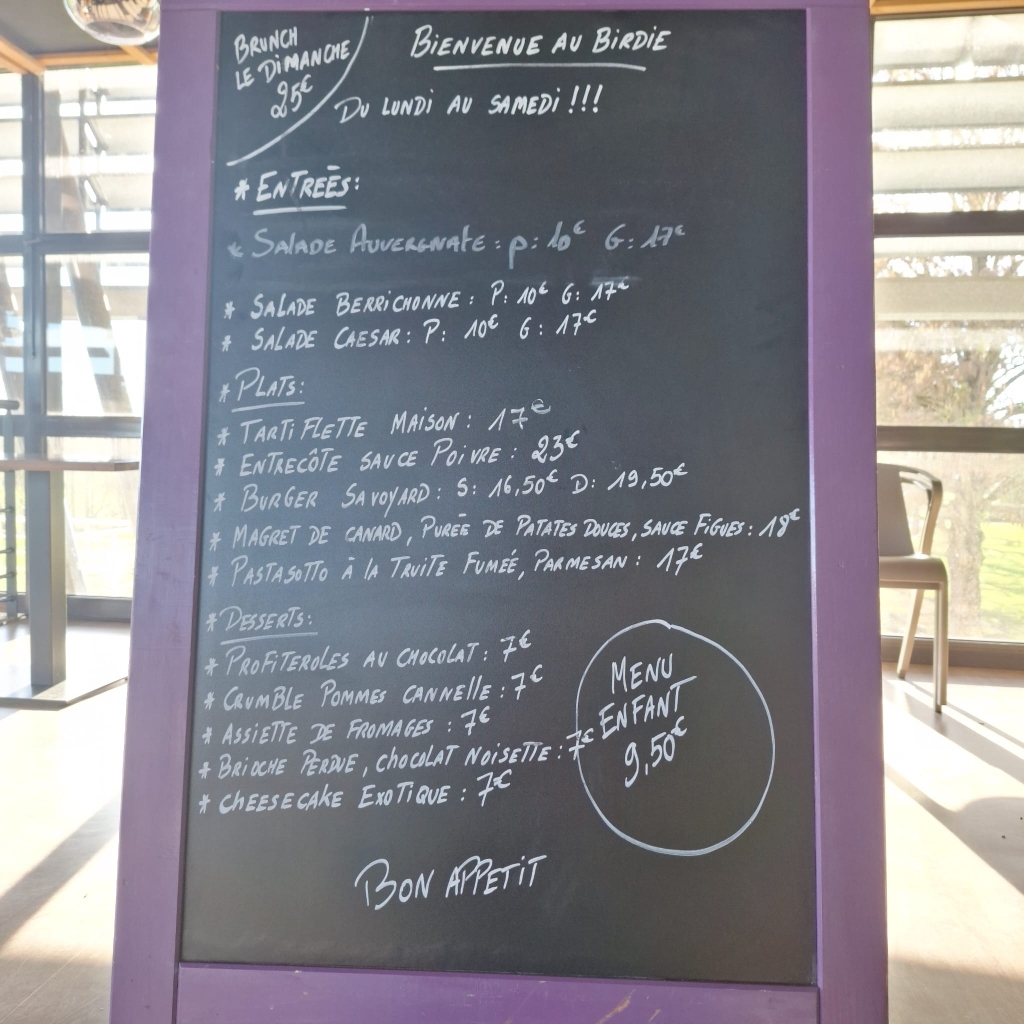 BRUNCH
LE DIMANCHE
25€
BIENVENUE AU BIRDIE
DU LUNDI AU SAMEDI !!!
* ENTREÉS:
* SALADE AUVERGNATE : P: 10€ G: 17€
* SALADE BERRICHONNE : P: 10€ G: 17€
* SALADE CAESAR : P: 10€ G: 17€
* PLATS:
* TARTIFLETTE MAISON : 17€
* ENTRECÔTE SAUCE POIVRE : 23€
* BURGER SAVOYARD : S: 16,50€ D: 19,50€
* MAGRET DE CANARD, PURÉE DE PATATES DOUCES, SAUCE FIGUES : 18€
* PASTASOTTO À LA TRUITE FUMÉÉ, PARMESAN : 17€
* DESSERTS:
* PROFITEROLES AU CHOCOLAT : 7€
* CRUMBLE POMMES CANNELLE : 7€
* ASSIETTE DE FROMAGES : 7€
* BRIOCHE PERDUE, CHOCOLAT NOISETTE : 7€
* CHEESECAKE EXOTIQUE : 7€
MENU
ENFANT
9,50€
BON APPETIT